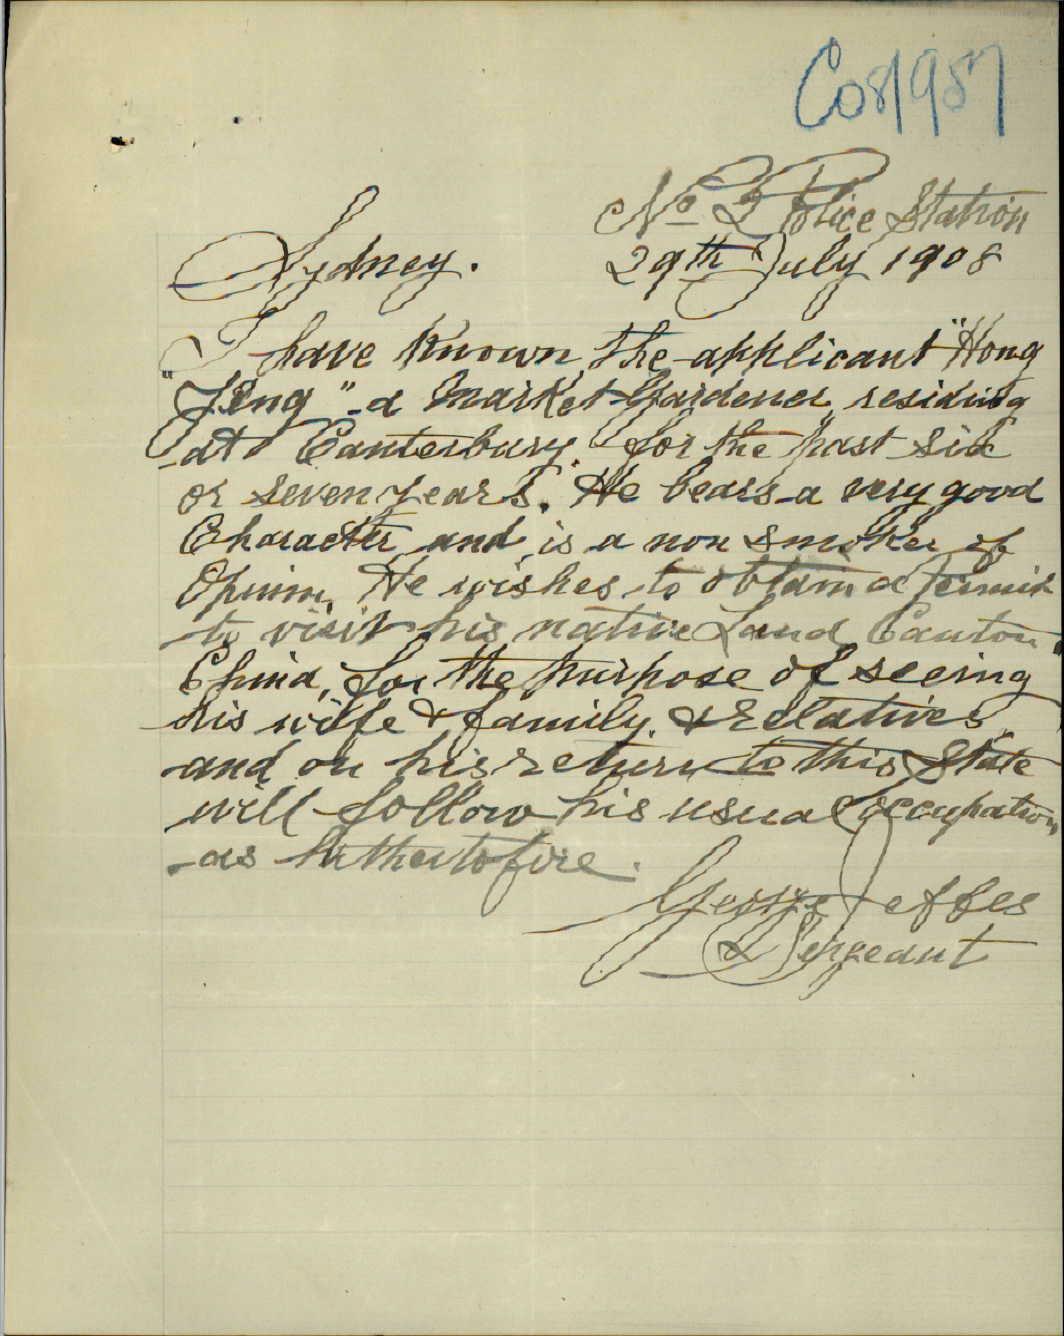 Co8/987
No 2 Police Station
Sydney. 29th July 1908
I have known the applicant "Hong
"Jing" a Market Gardener residing
at Canterbury for the past six
or seven years. He bears a very good
Character and is a non smoker of
Opium. He wishes to obtain a permit
to visit his native Land Canton
China, for the purpose of seeing
his wife & family. & relatives
and on his return to this State
will follow his usual occupation
as hithertofore.
George Jeffes
Sergeant